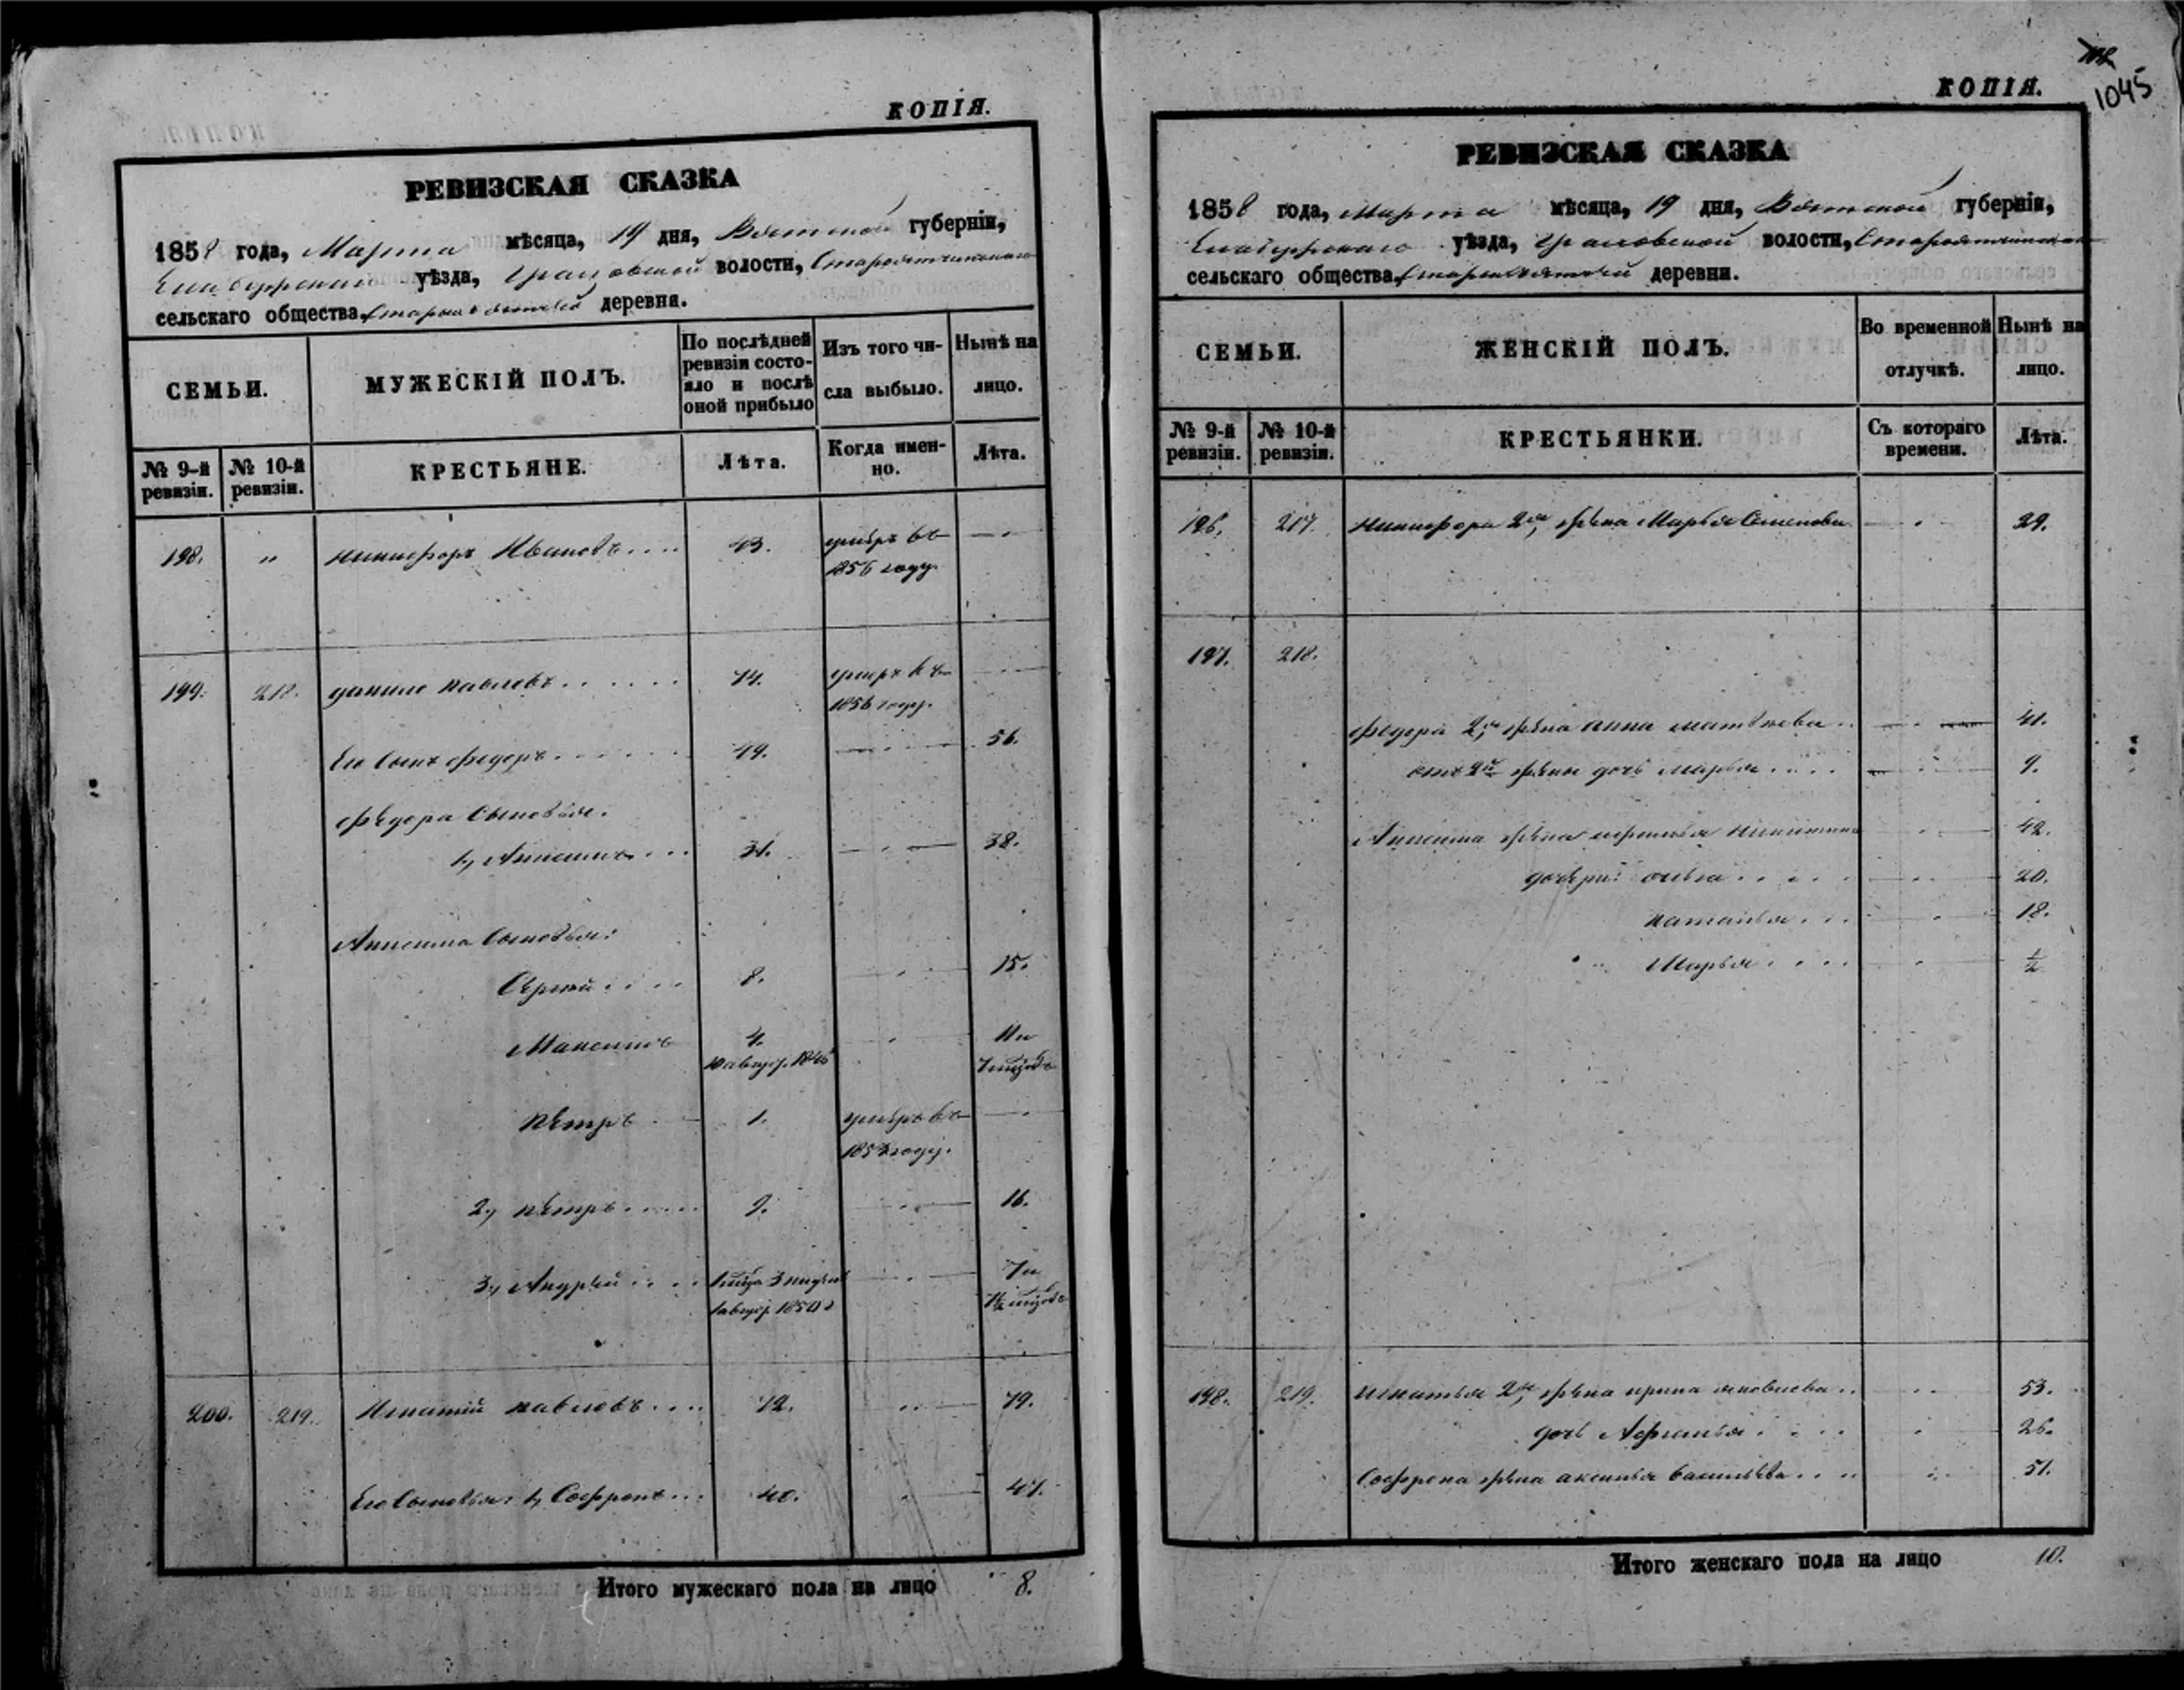 КОПІЯ.
РЕВИЗСКАЯ СКАЗКА
1858 года, Марта мѣсяца, 19 дня, Вятской губерніи,
Елабужскаго уѣзда, волости,
сельскаго общества, деревни.
СЕМЬИ.
МУЖЕСКІЙ ПОЛЪ.
По послѣдней ревизіи состояло и послѣ оной прибыло
Изъ того числа выбыло.
Нынѣ на лицо.
№ 9-й ревизіи.
№ 10-й ревизіи.
КРЕСТЬЯНЕ.
Лѣта.
Когда именно.
Лѣта.
198. " Никифоръ Ивановъ.... 43. умеръ въ
1856 году.
199. 218. Данило Павловъ...... 74. умеръ въ
1856 году.
Его сынъ Федоръ...... 49. 56.
Федора сыновья.
1, Анисимъ... 31. 38.
Анисима сыновья:
Сергей.... 8. 15.
Максимъ 4. 11 и
7 мѣсяцовъ
Петръ 1. умеръ въ
году.
2, Петръ..... 9. 16.
3, Андрей.... 7 и
200. 219. Игнатій Павловъ.... 72. 79.
Его сыновья: 1, Софронъ... 40. 47.
Итого мужескаго пола на лицо 8.
КОПІЯ.
1045
РЕВИЗСКАЯ СКАЗКА
1858 года, Марта мѣсяца, 19 дня, Вятской губерніи,
Елабужскаго уѣзда, волости,
сельскаго общества, деревни.
СЕМЬИ.
ЖЕНСКІЙ ПОЛЪ.
Во временной отлучкѣ.
Нынѣ на лицо.
№ 9-й ревизіи.
№ 10-й ревизіи.
КРЕСТЬЯНКИ.
Съ котораго времени.
Лѣта.
196. 217. Никифора 2я жена Марья Семенова 29.
197. 218.
Федора 2я жена Анна Матвеева.. 41.
отъ 2й жены дочь Марья.... 9.
Анисима жена Никитина 42.
дочери: 20.
Наталья... 18.
Марья.... ½
198. 219. Игнатья 2я жена Ирина Яковлева.. 53.
дочь 26.
Софрона жена Аксинья Васильева.... 51.
Итого женскаго пола на лицо 10.